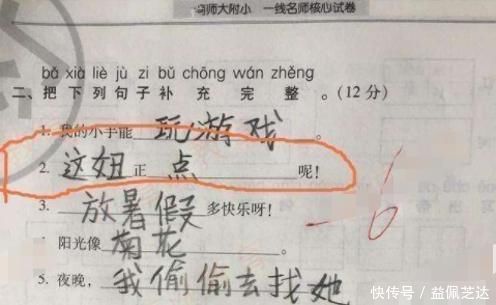 师大附小 一线名师核心试卷
bǎ xià liè jù zi bǔ chōng wán zhěng
二、把下列句子补充完整。(12分)
1. 我的小手能 玩游戏 。
2. 这妞正 点 呢!
3. 放暑假多快乐呀!
阳光像 菊花
5. 夜晚,我偷偷去找她
-6
快传号 / 益佩芝达